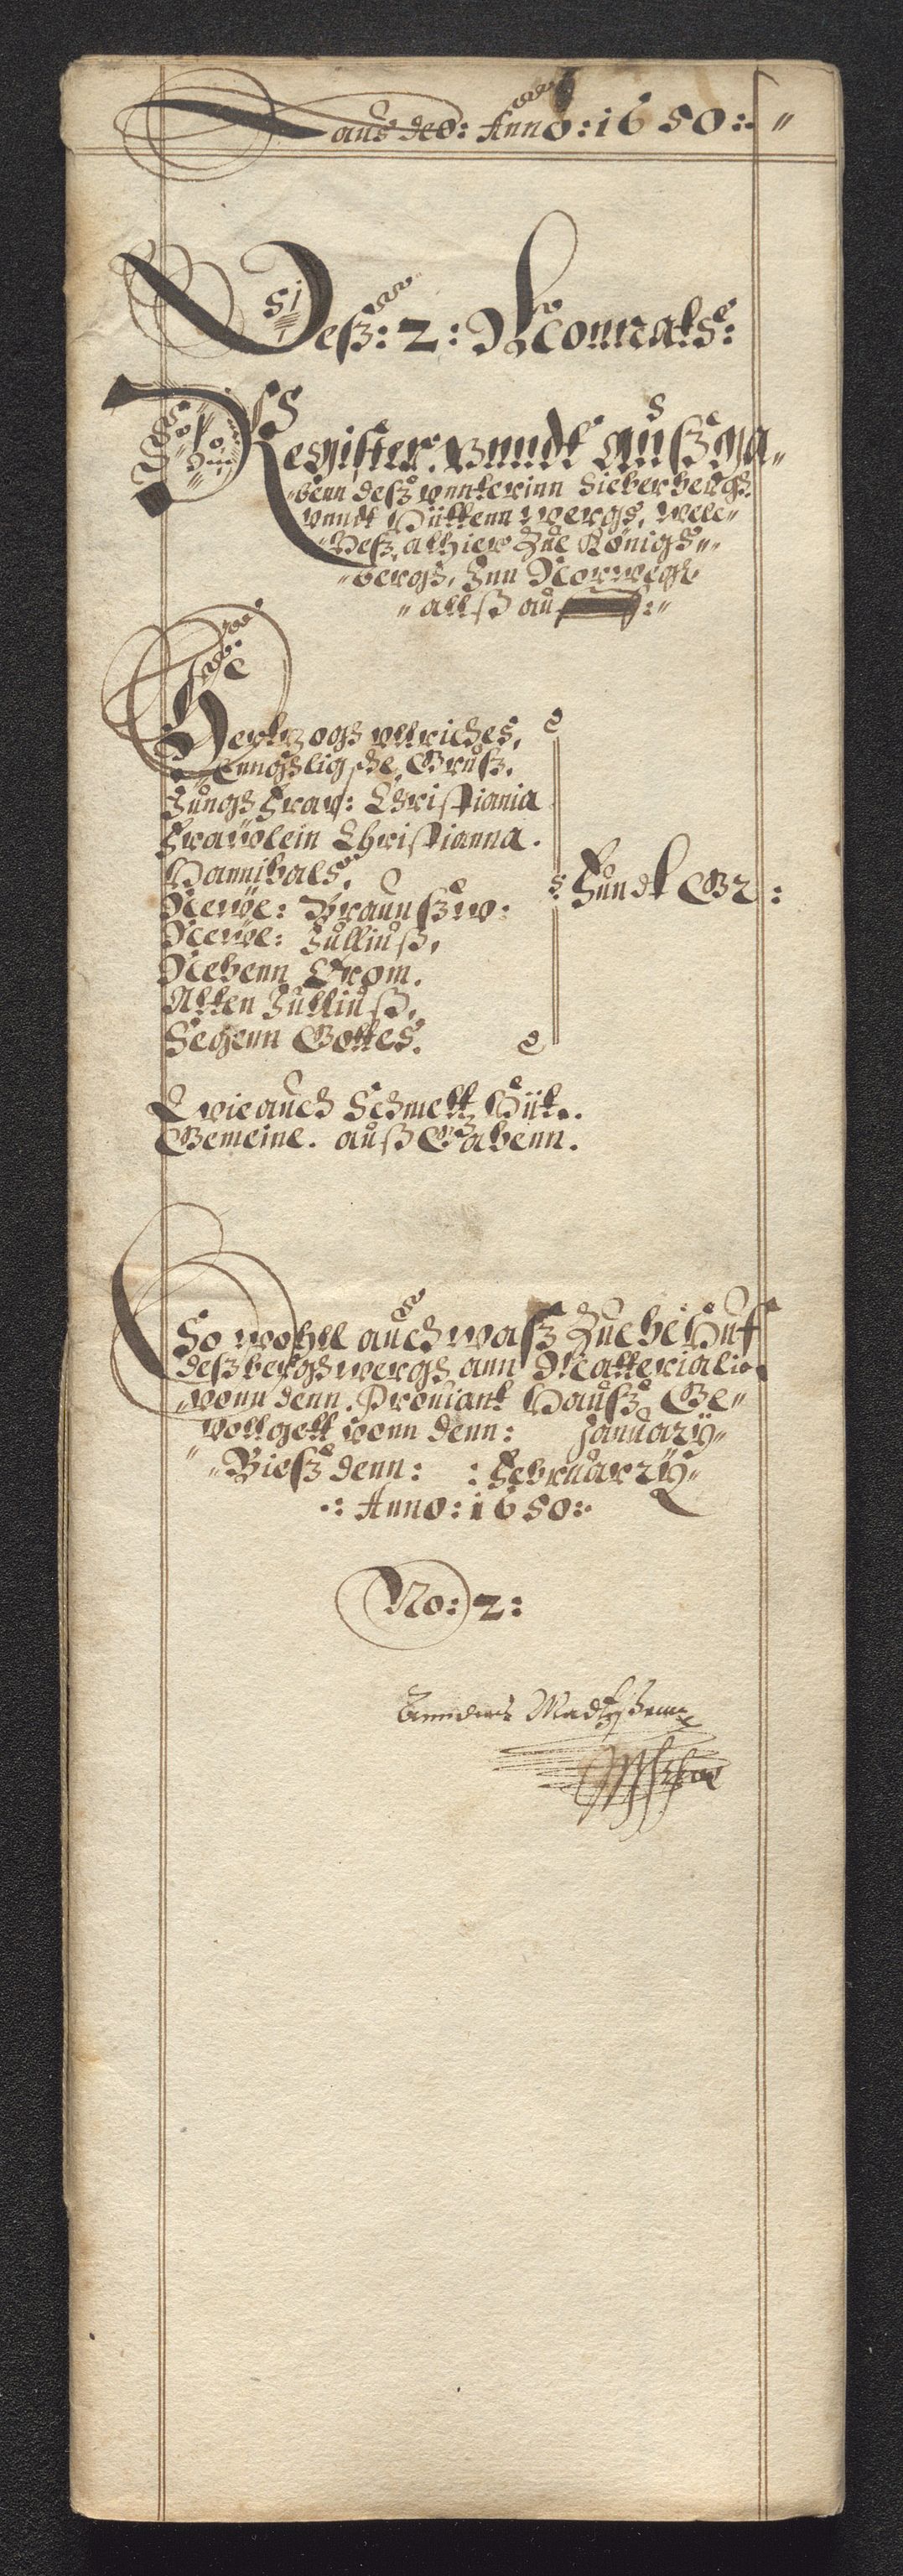 aus des: Anno: 1650:
Desz: 2: Monnats:
Register. Vnndt Auszga„
„benn desz vnnterinn Sielberbergs.
vnndt Hüttenn wergs, wel„
„ches, alhier zue Königs„
„bergs, Inn Norwegen
„allsz auf
Hertzogs vllriches,
Junngs Fraw: Christiania
Fraüolein Christianna.
Hannibals,
Newe: Braunszw:
Newe: Julliusz,
Nebenn Drom.
Alten Julliusz,
Segenn Gottes.
Fundt Gr:
wieauch Schmeltz Hüt.
Gemeine. ausz Gabenn.
So wohll auch wasz zue behuf
desz bergswergs ann Matterialien
vonn denn. Proviant Hausz, Ge„
vollgett vonn denn: January„
„Biesz denn: : February„
Anno: 1650:
No: 2:
Madtzsenn